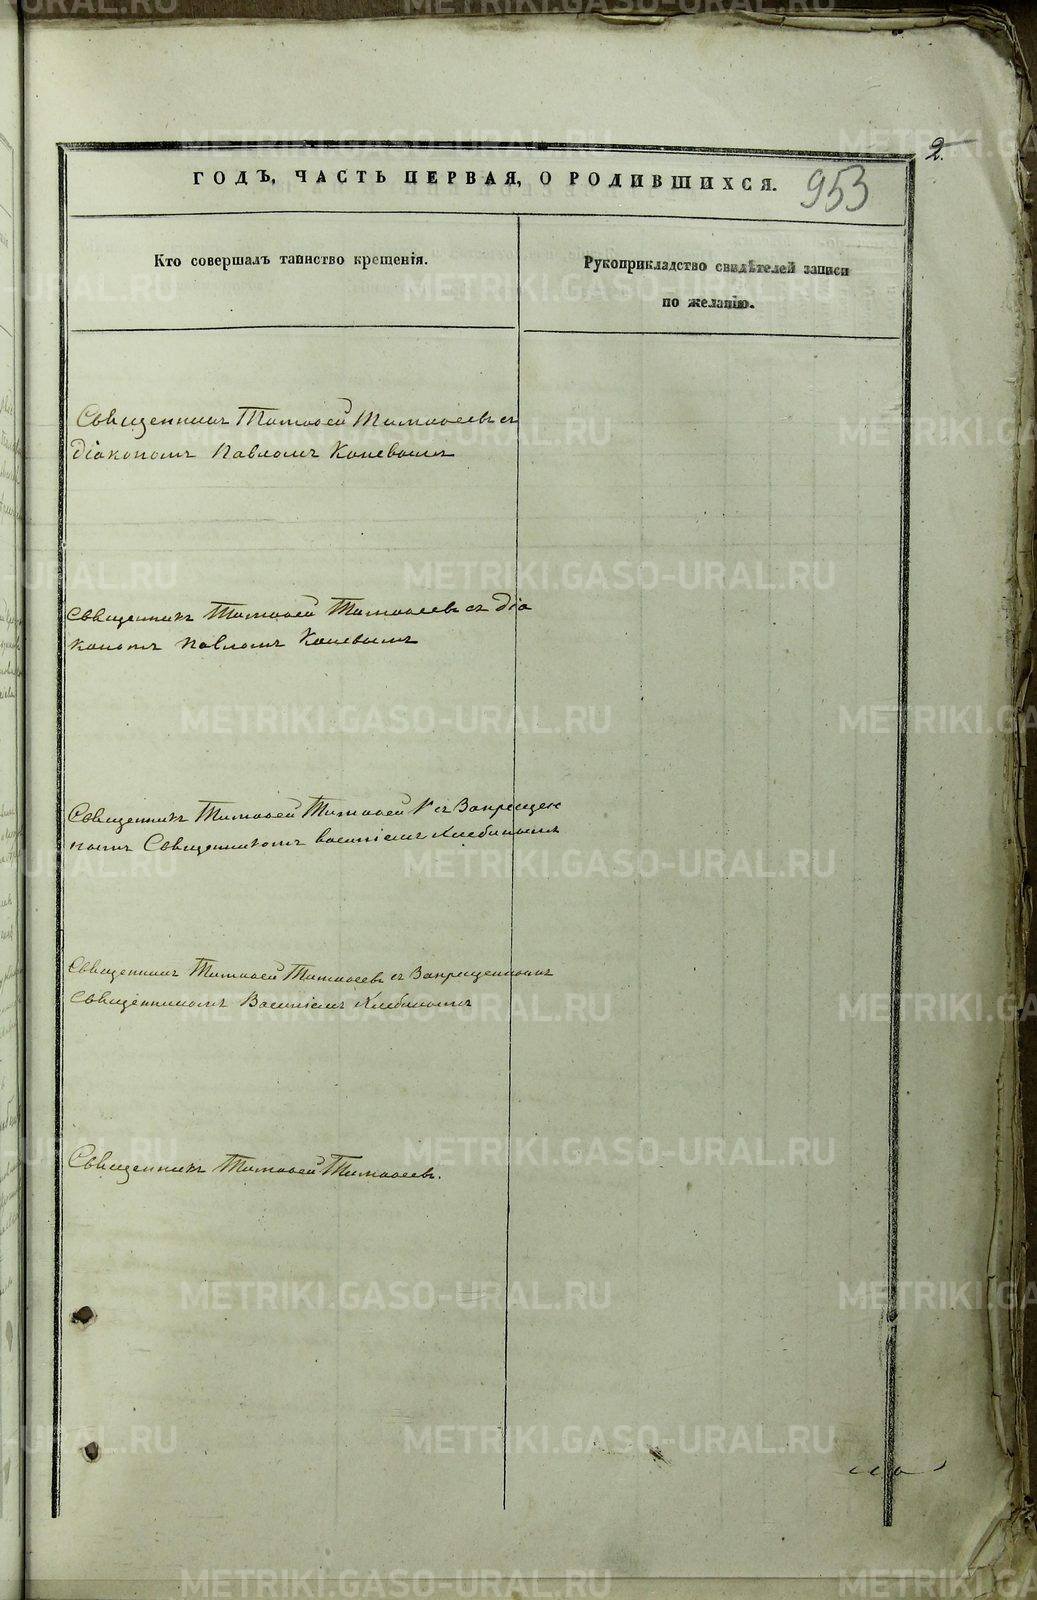 2.
ГОДЪ, ЧАСТЬ ПЕРВАЯ, О РОДИВШИХСЯ.
953
Кто совершалъ таинство крещенія.
Рукоприкладство свидѣтелей записи
по желанію.
Священникъ Тимофей Тимофеевъ съ
діакономъ Павломъ Каневымъ
Священникъ Тимофей Тимофеевъ съ діа
кономъ Павломъ Каневымъ
Священникъ Тимофей Тимофей съ Запрещен
нымъ Священникомъ
Священникъ Тимофей Тимофеевъ съ Запрещеннымъ
Священникомъ
Священникъ Тимофей Тимофеевъ.
METRIKI.GASO-URAL.RU